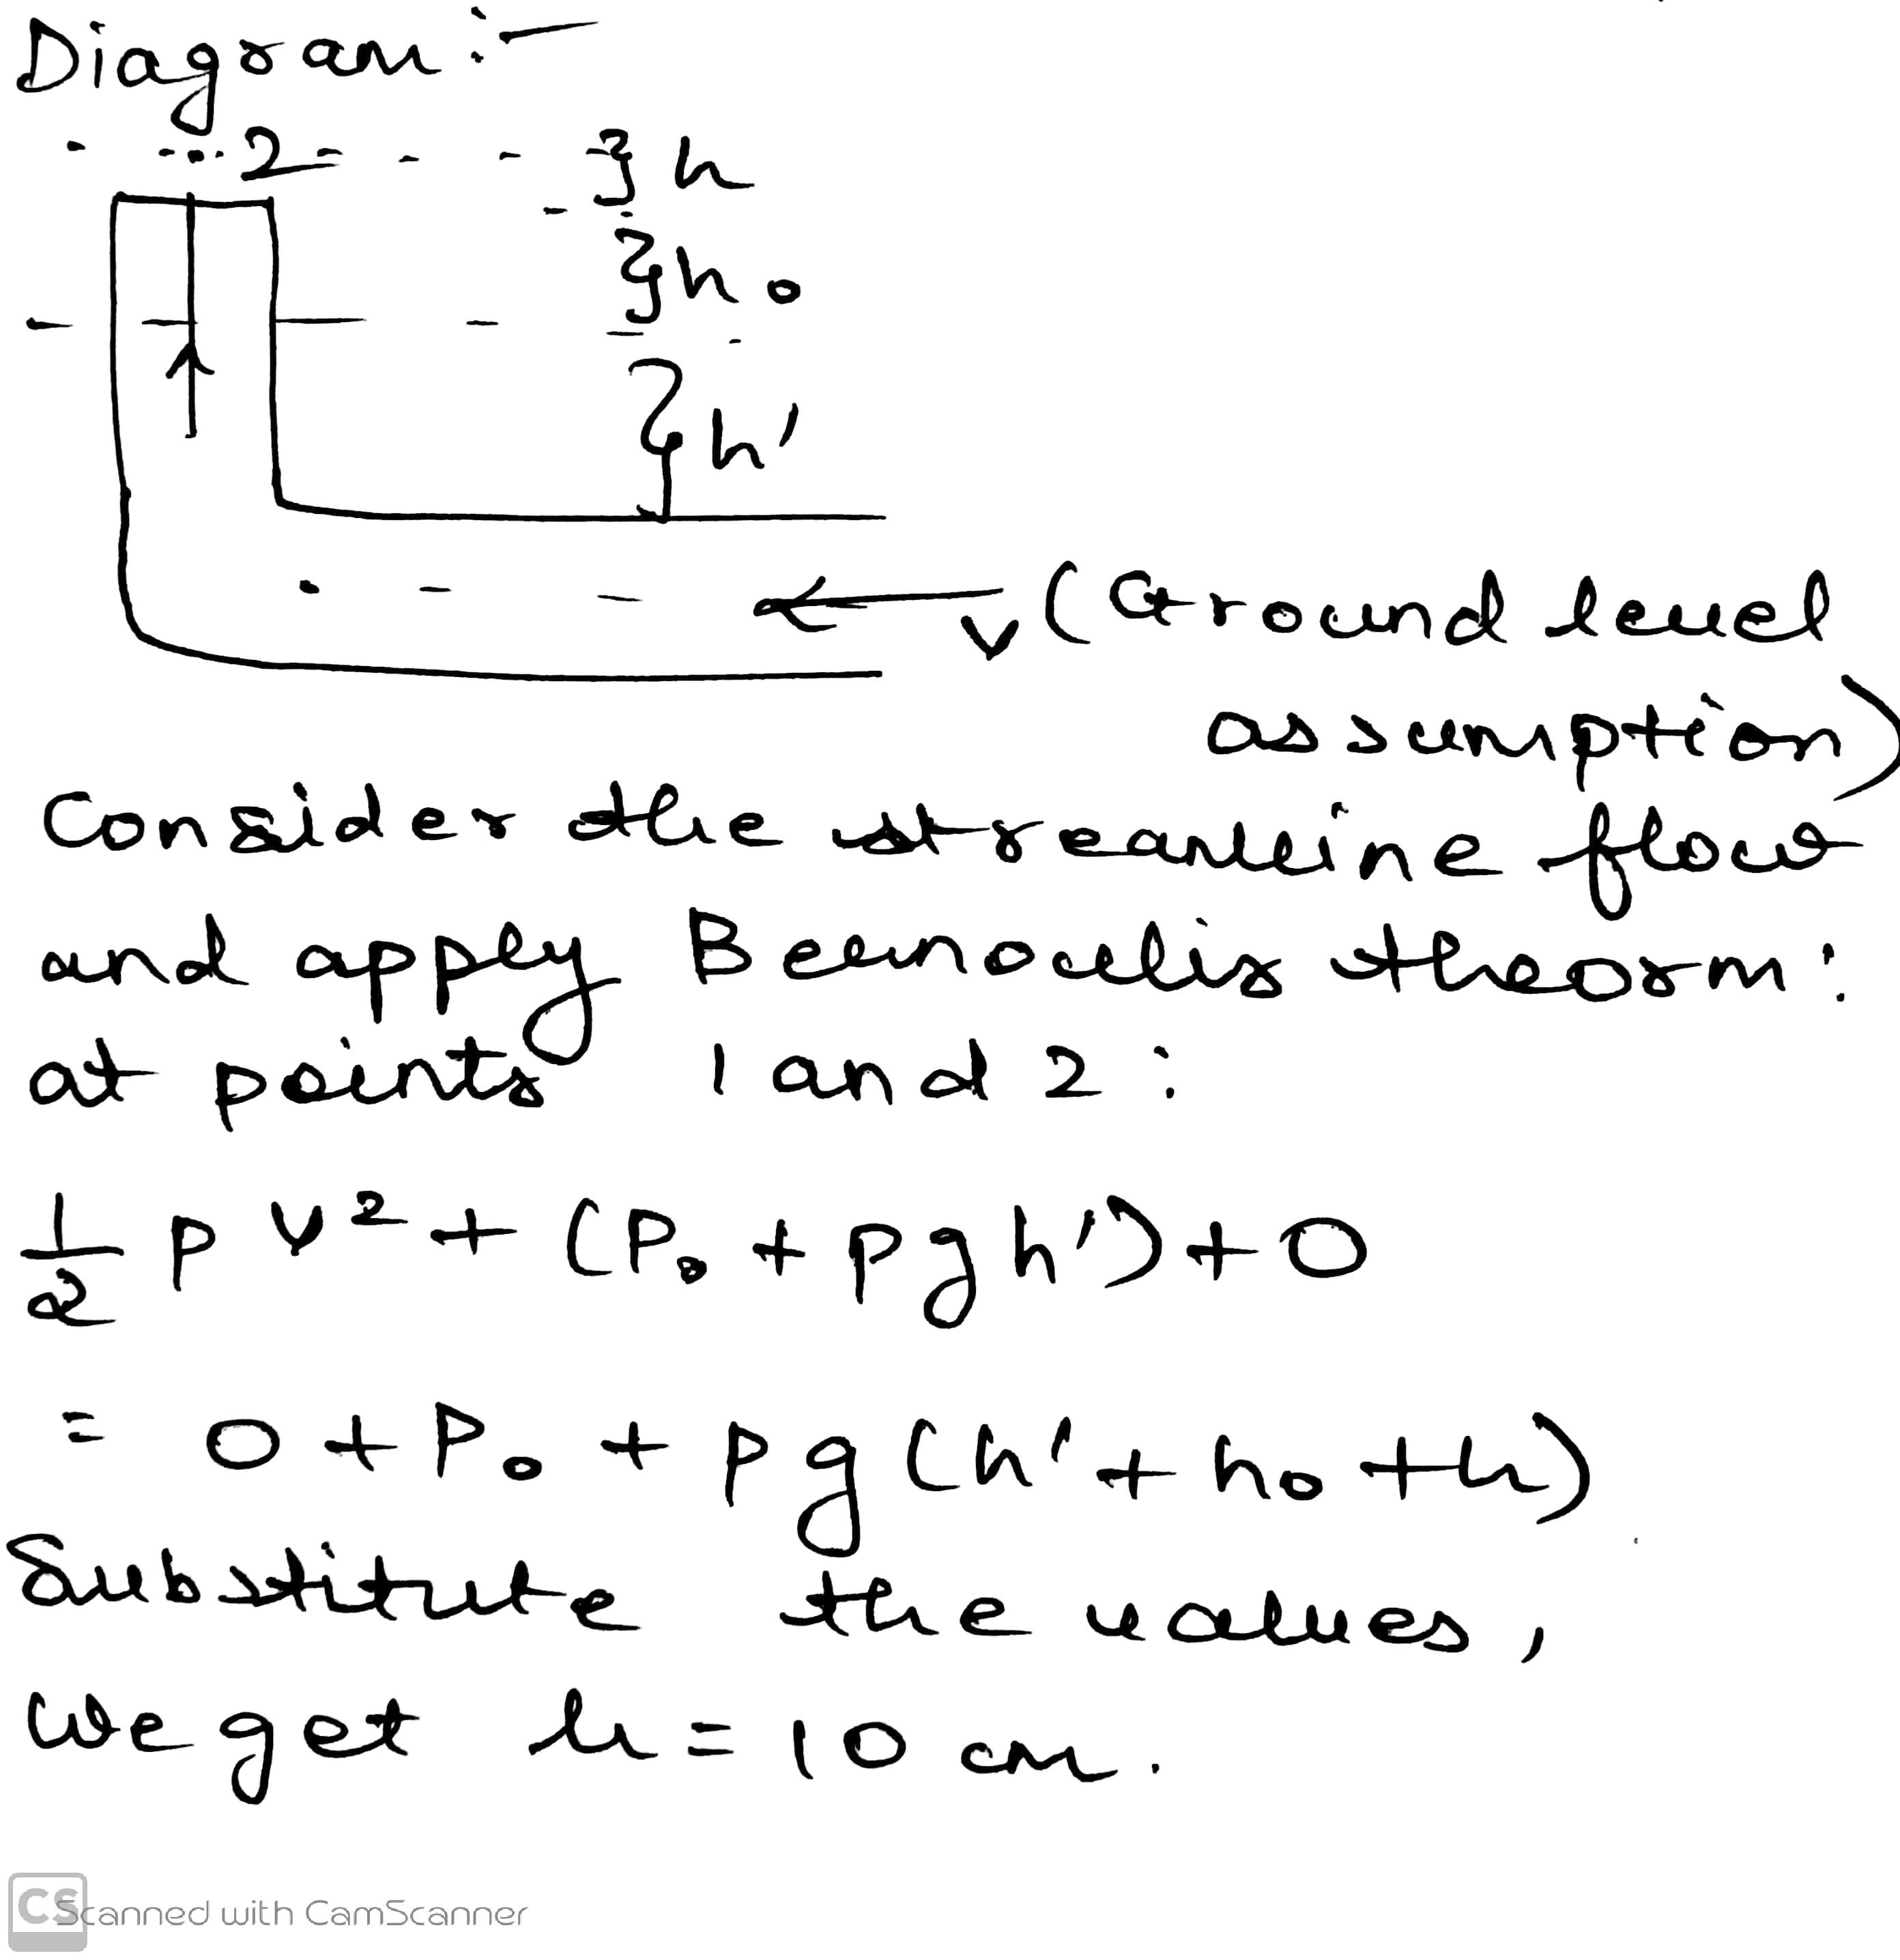 Diagram :-
2
} h
} h₀
} h'
v (Ground level
assumption)
Consider the streamline flow
and apply Beernoullis theorm:
at points 1 and 2 :
1/2 ρ v² + (P₀ + ρ g h') + 0
= 0 + P₀ + ρ g (h' + h₀ + h)
Substitute the values,
We get h = 10 cm.
CS Scanned with CamScanner